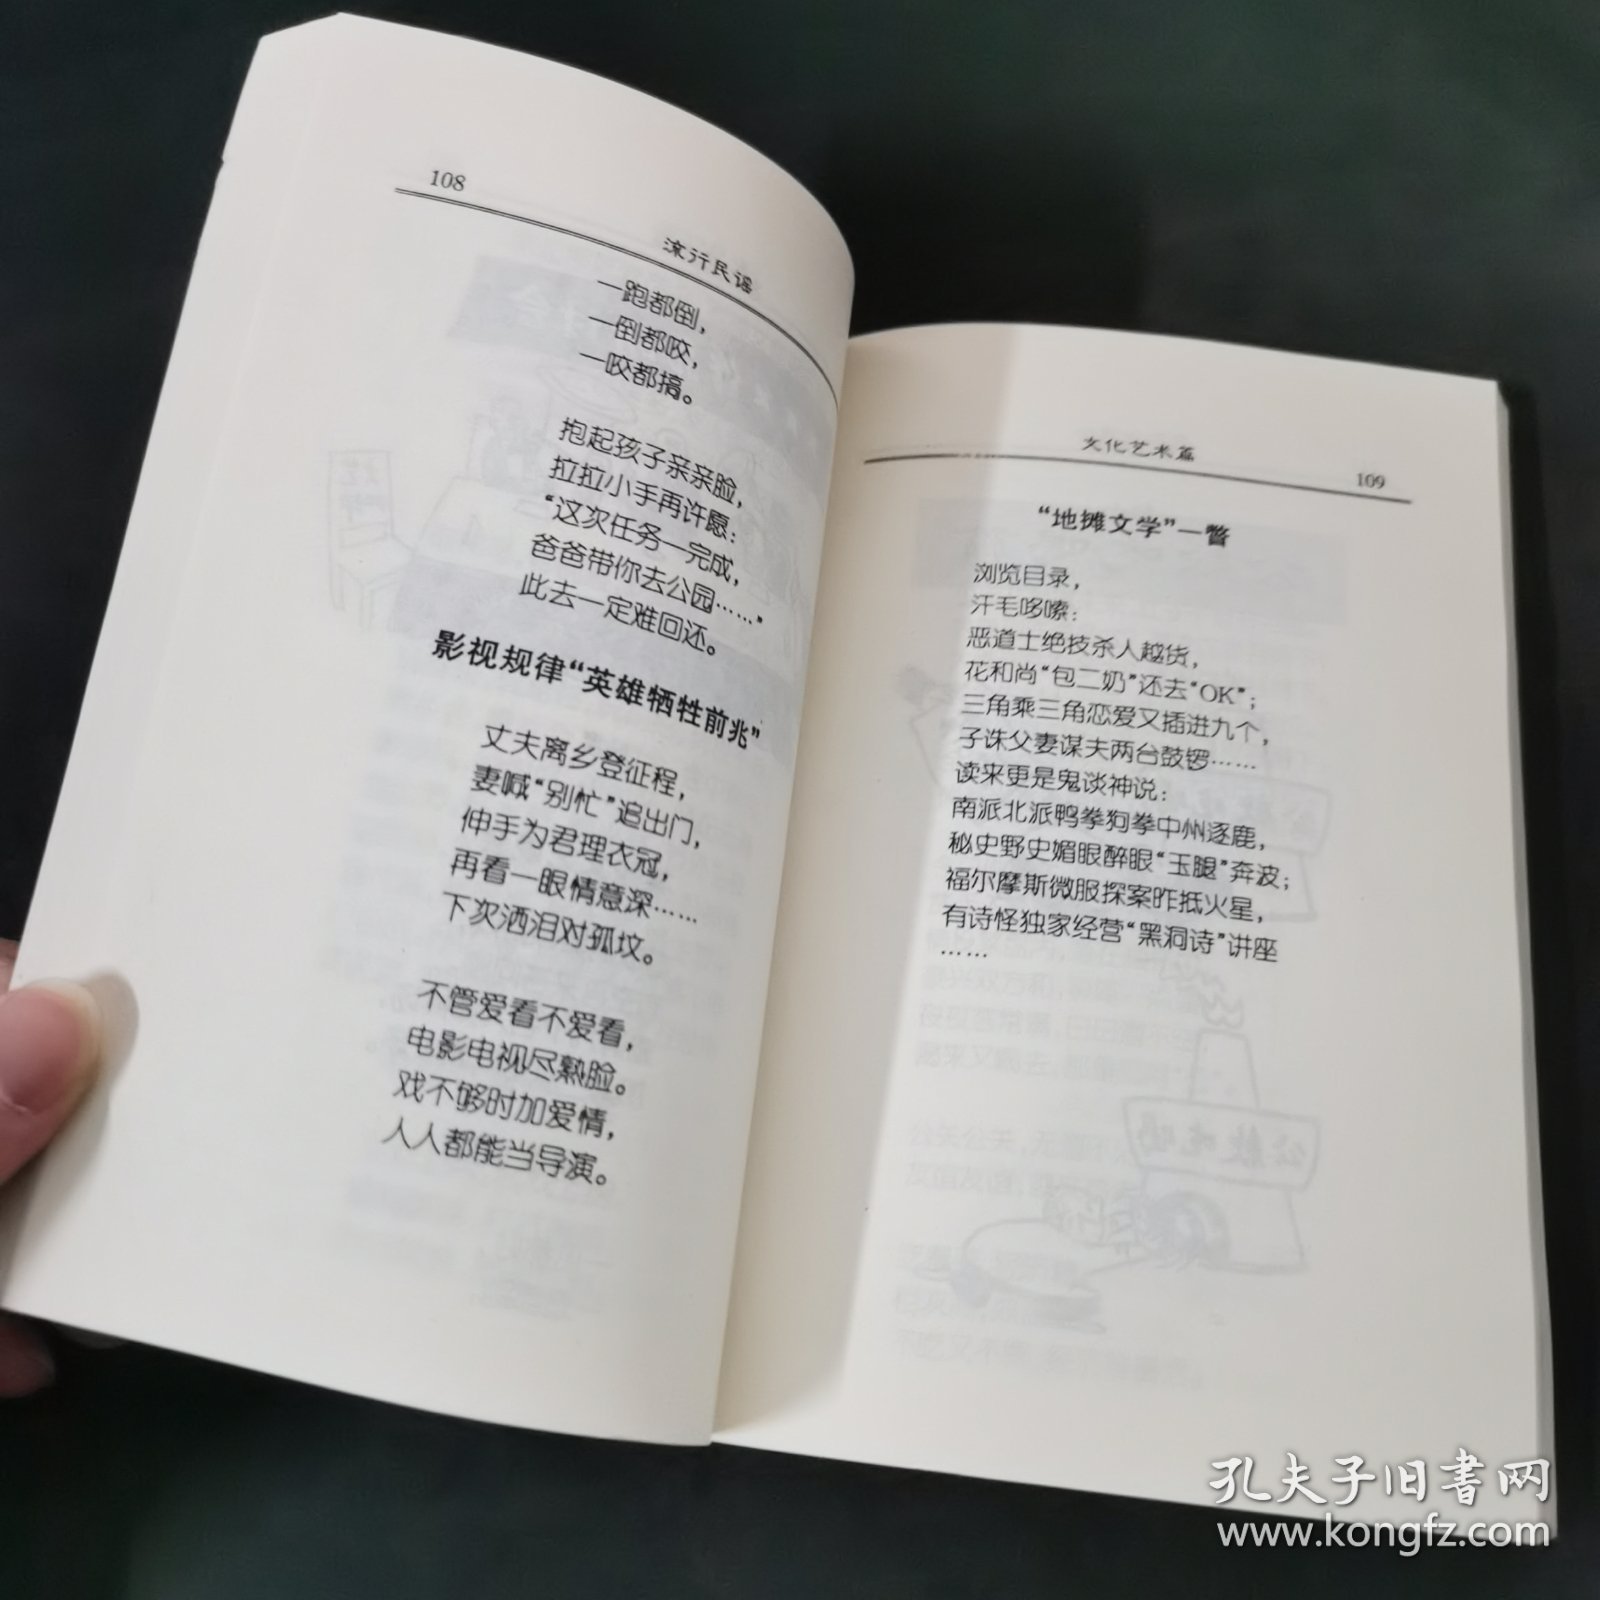 108
流行民谣
一跑都倒，
一倒都咬，
一咬都搞。
抱起孩子亲亲脸，
拉拉小手再许愿：
“这次任务一完成，
爸爸带你去公园……”
此去一定难回还。
影视规律“英雄牺牲前兆”
丈夫离乡登征程，
妻喊“别忙”追出门，
伸手为君理衣冠，
再看一眼情意深……
下次洒泪对孤坟。
不管爱看不爱看，
电影电视尽熟脸。
戏不够时加爱情，
人人都能当导演。
文化艺术篇
109
“地摊文学”一瞥
浏览目录，
汗毛哆嗦：
恶道士绝技杀人越货，
花和尚“包二奶”还去“OK”；
三角乘三角恋爱又插进九个，
子诛父妻谋夫两台鼓锣……
读来更是鬼谈神说：
南派北派鸭拳狗拳中州逐鹿，
秘史野史媚眼醉眼“玉腿”奔波；
福尔摩斯微服探案昨抵火星，
有诗怪独家经营“黑洞诗”讲座
……
孔夫子旧书网
www.kongfz.com